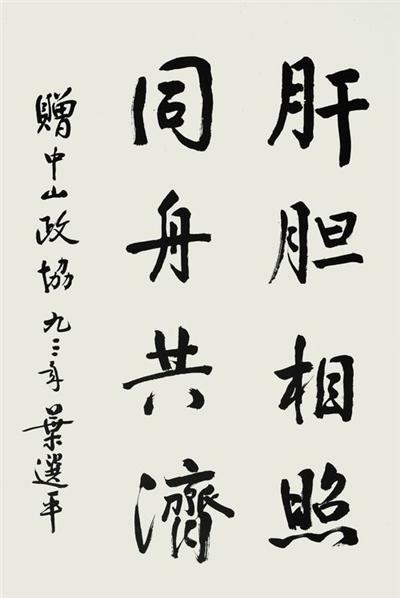 肝胆相照
同舟共濟
贈中山政協 九三年 葉選平